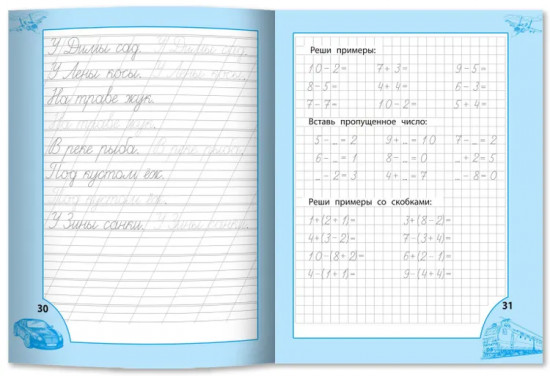 У Димы сад. У Димы сад.
У Лены косы. У Лены косы.
На траве жук.
На траве жук.
В реке рыба. В реке рыба.
Под кустом ёж.
Под кустом ёж.
У Зины санки. У Зины санки.
30
Реши примеры:
10-2= 7+3= 9-5=
8-5= 4+4= 6-3=
7-7= 10-2= 5+4=
Вставь пропущенное число:
5-_=2 9+_=10 7-_=2
6-_=1 8-_=0 _+2=5
_-2=3 4+_=7 _-8=0
Реши примеры со скобками:
1+(2+1)= 3+(8-2)=
4+(3-2)= 7-(3+4)=
10-(8+2)= 6+(2-1)=
4-(1+1)= 9-(4+4)=
31